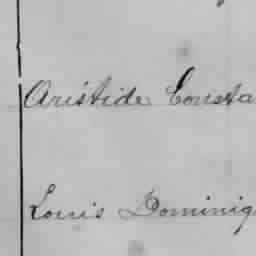 Aristide Consta
Louis Dominiq